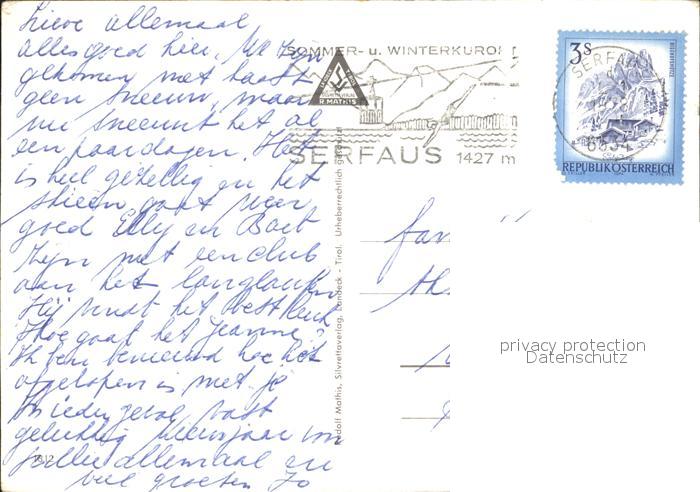 Lieve allemaal
alles goed hier. We zijn
gekomen met haast
geen sneeuw, maar
nu sneeuwt het al
een paar dagen. Het
is heel gezellig en het
skieen gaat weer
goed Elly en Bart
zijn met een club
aan het langlaufen
Hij vindt het best leuk
Hoe gaat het Jeanne?
Ik ben benieuwd hoe het
afgelopen is met je
In ieder geval vast
gelukkig Nieuwjaar voor
jullie allemaal en
veel groeten Jo
7812
SOMMER- u. WINTERKURO
R. MATHIS
SERFAUS 1427 m
Rudolf Mathis, Silvrettaverlag, Landeck - Tirol. Urheberrechtlich geschützt
3 S
SERFAU
6534
REPUBLIK ÖSTERREICH
fam
privacy protection
Datenschutz